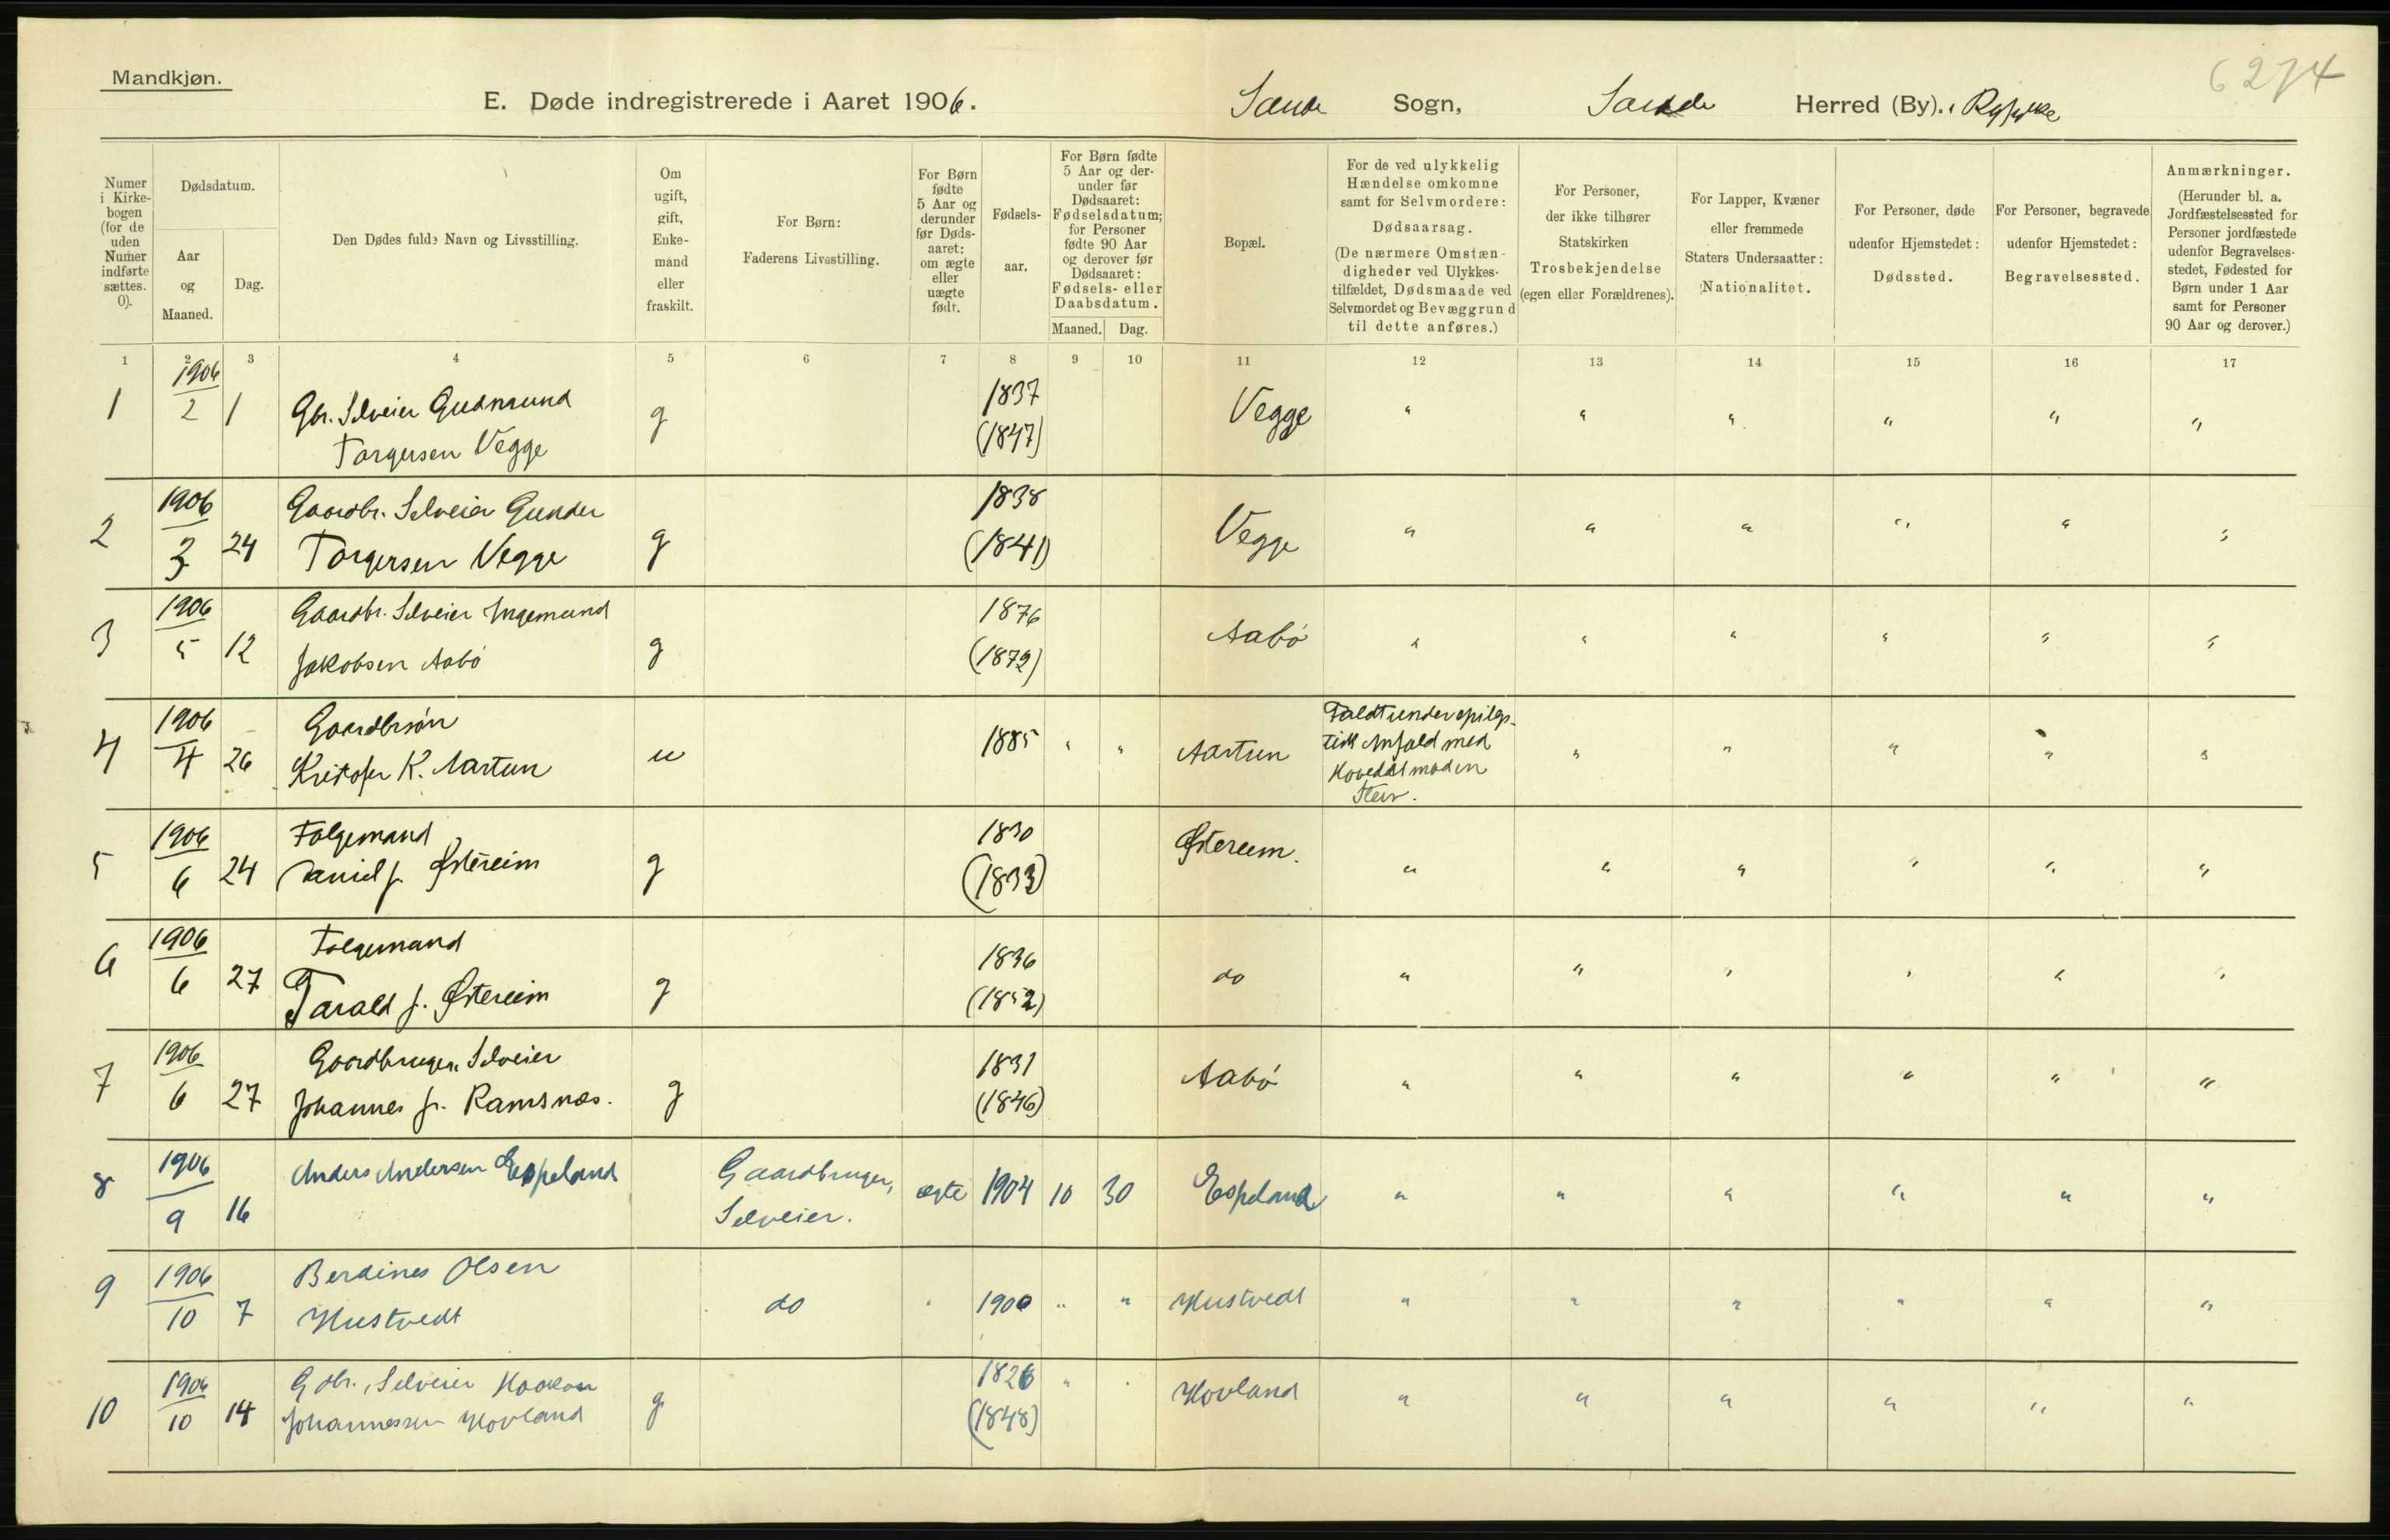 6 274
Mandkjøn.
E. Døde indregistrerede i Aaret 1906.
Sande Sogn, Sande Herred (By).
Numer i Kirkebogen (for de uden Numer indførte sættes. 0).
Dødsdatum.
Aar og Maaned.
Dag.
Den Dødes fulde Navn og Livsstilling.
Om ugift, gift, Enkemand eller fraskilt.
For Børn: Faderens Livsstilling.
For Børn fødte 5 Aar og derunder før Dødsaaret: om ægte eller uægte født.
Fødselsaar.
For Børn fødte 5 Aar og derunder før Dødsaaret: Fødselsdatum; for Personer fødte 90 Aar og derover før Dødsaaret: Fødsels- eller Daabsdatum.
Maaned. Dag.
Bopæl.
For de ved ulykkelig Hændelse omkomne samt for Selvmordere: Dødsaarsag. (De nærmere Omstændigheder ved Ulykkestilfældet, Dødsmaade ved Selvmordet og Bevæggrund til dette anføres.)
For Personer, der ikke tilhører Statskirken Trosbekjendelse (egen eller Forældrenes).
For Lapper, Kvæner eller fremmede Staters Undersaatter: Nationalitet.
For Personer, døde udenfor Hjemstedet: Dødssted.
For Personer, begravede udenfor Hjemstedet: Begravelsessted.
Anmærkninger. (Herunder bl. a. Jordfæstelsessted for Personer jordfæstede udenfor Begravelsesstedet, Fødested for Børn under 1 Aar samt for Personer 90 Aar og derover.)
1 2 3 4 5 6 7 8 9 10 11 12 13 14 15 16 17
1 1906/2 1 Gbr. Selveier Gudmund g 1837 Vegge " " " " " "
Torgersen Vegge (1847)
2 1906/3 24 Gaardbr. Selveier Gunder g 1838 Vegge " " " " " "
Torgersen Vegge (1841)
3 1906/5 12 Gaardbr. Selveier Ingemund g 1876 Aabø " " " " " "
Jakobsen Aabø (1879)
4 1906/4 26 Gaardbrsøn u 1885 " " Aartun Faldt under epilep-
Kristofer K. Aartun tisk Anfald med
Hovedet mod en
Sten. " " " " "
5 1906/6 24 Folgemand g 1830 Østereim. " " " " " "
Daniel J. Østereim (1833)
6 1906/6 27 Folgemand g 1836 do " " " " " "
Tarald J. Østereim (1852)
7 1906/6 27 Gaardbruger, Selveier g 1831 Aabø " " " " " "
Johannes J. Ramsnæs. (1846)
8 1906/9 16 Anders Andersen Espeland Gaardbruger, ægte 1904 10 30 Espeland " " " " " "
Selveier.
9 1906/10 7 Berdines Olsen do " 1900 " " Hustvedt " " " " " "
Hustvedt
10 1906/10 14 Gdbr., Selveier Haakon g 1826 " " Hovland " " " " " "
Johannessen Hovland (1848)